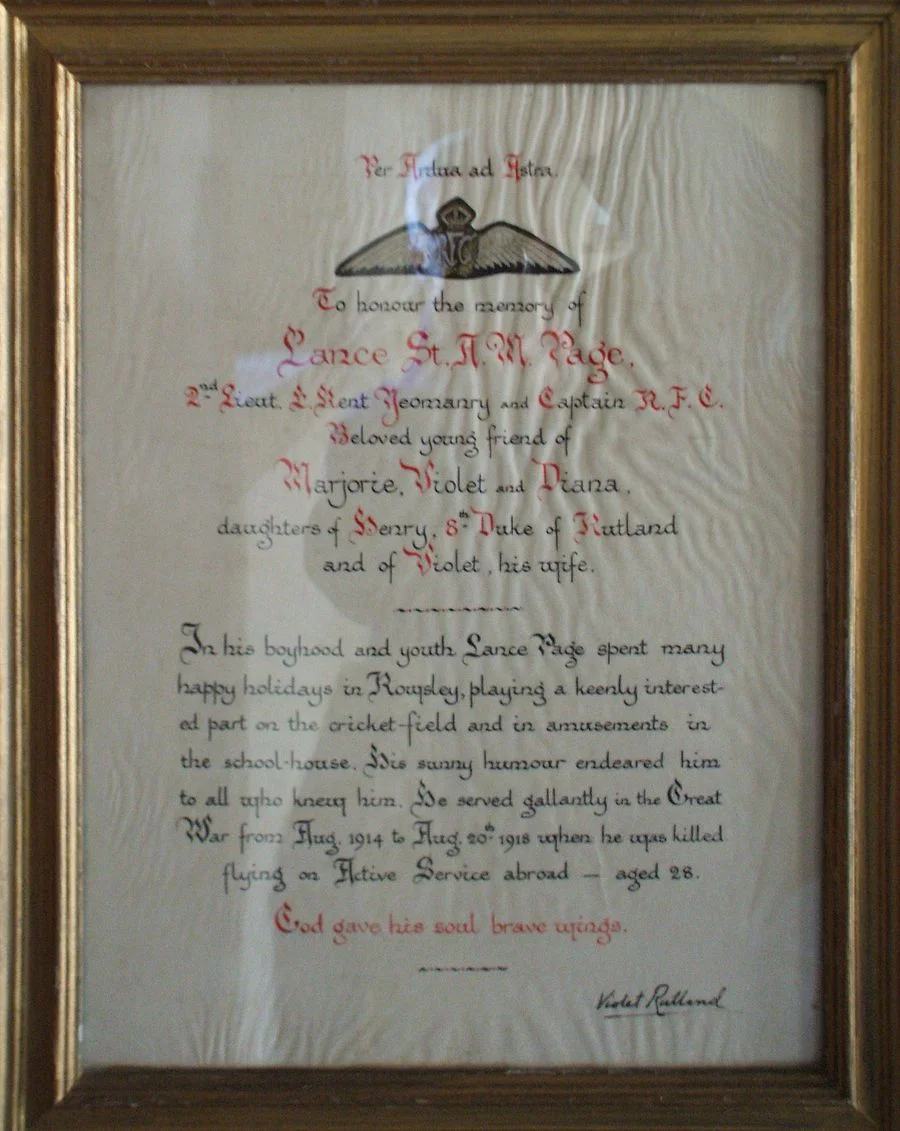 Per Ardua ad Astra.
RFC
To honour the memory of
Lance St. A. M. Page.
2nd Lieut. E. Kent Yeomanry and Captain R. F. C.
Beloved young friend of
Marjorie, Violet and Diana,
daughters of Henry, 8th Duke of Rutland
and of Violet, his wife.
In his boyhood and youth Lance Page spent many
happy holidays in Rowsley, playing a keenly interest-
ed part on the cricket-field and in amusements in
the school-house. His sunny humour endeared him
to all who knew him. He served gallantly in the Great
War from Aug. 1914 to Aug. 20th 1918 when he was killed
flying on Active Service abroad — aged 28.
God gave his soul brave wings.
Violet Rutland